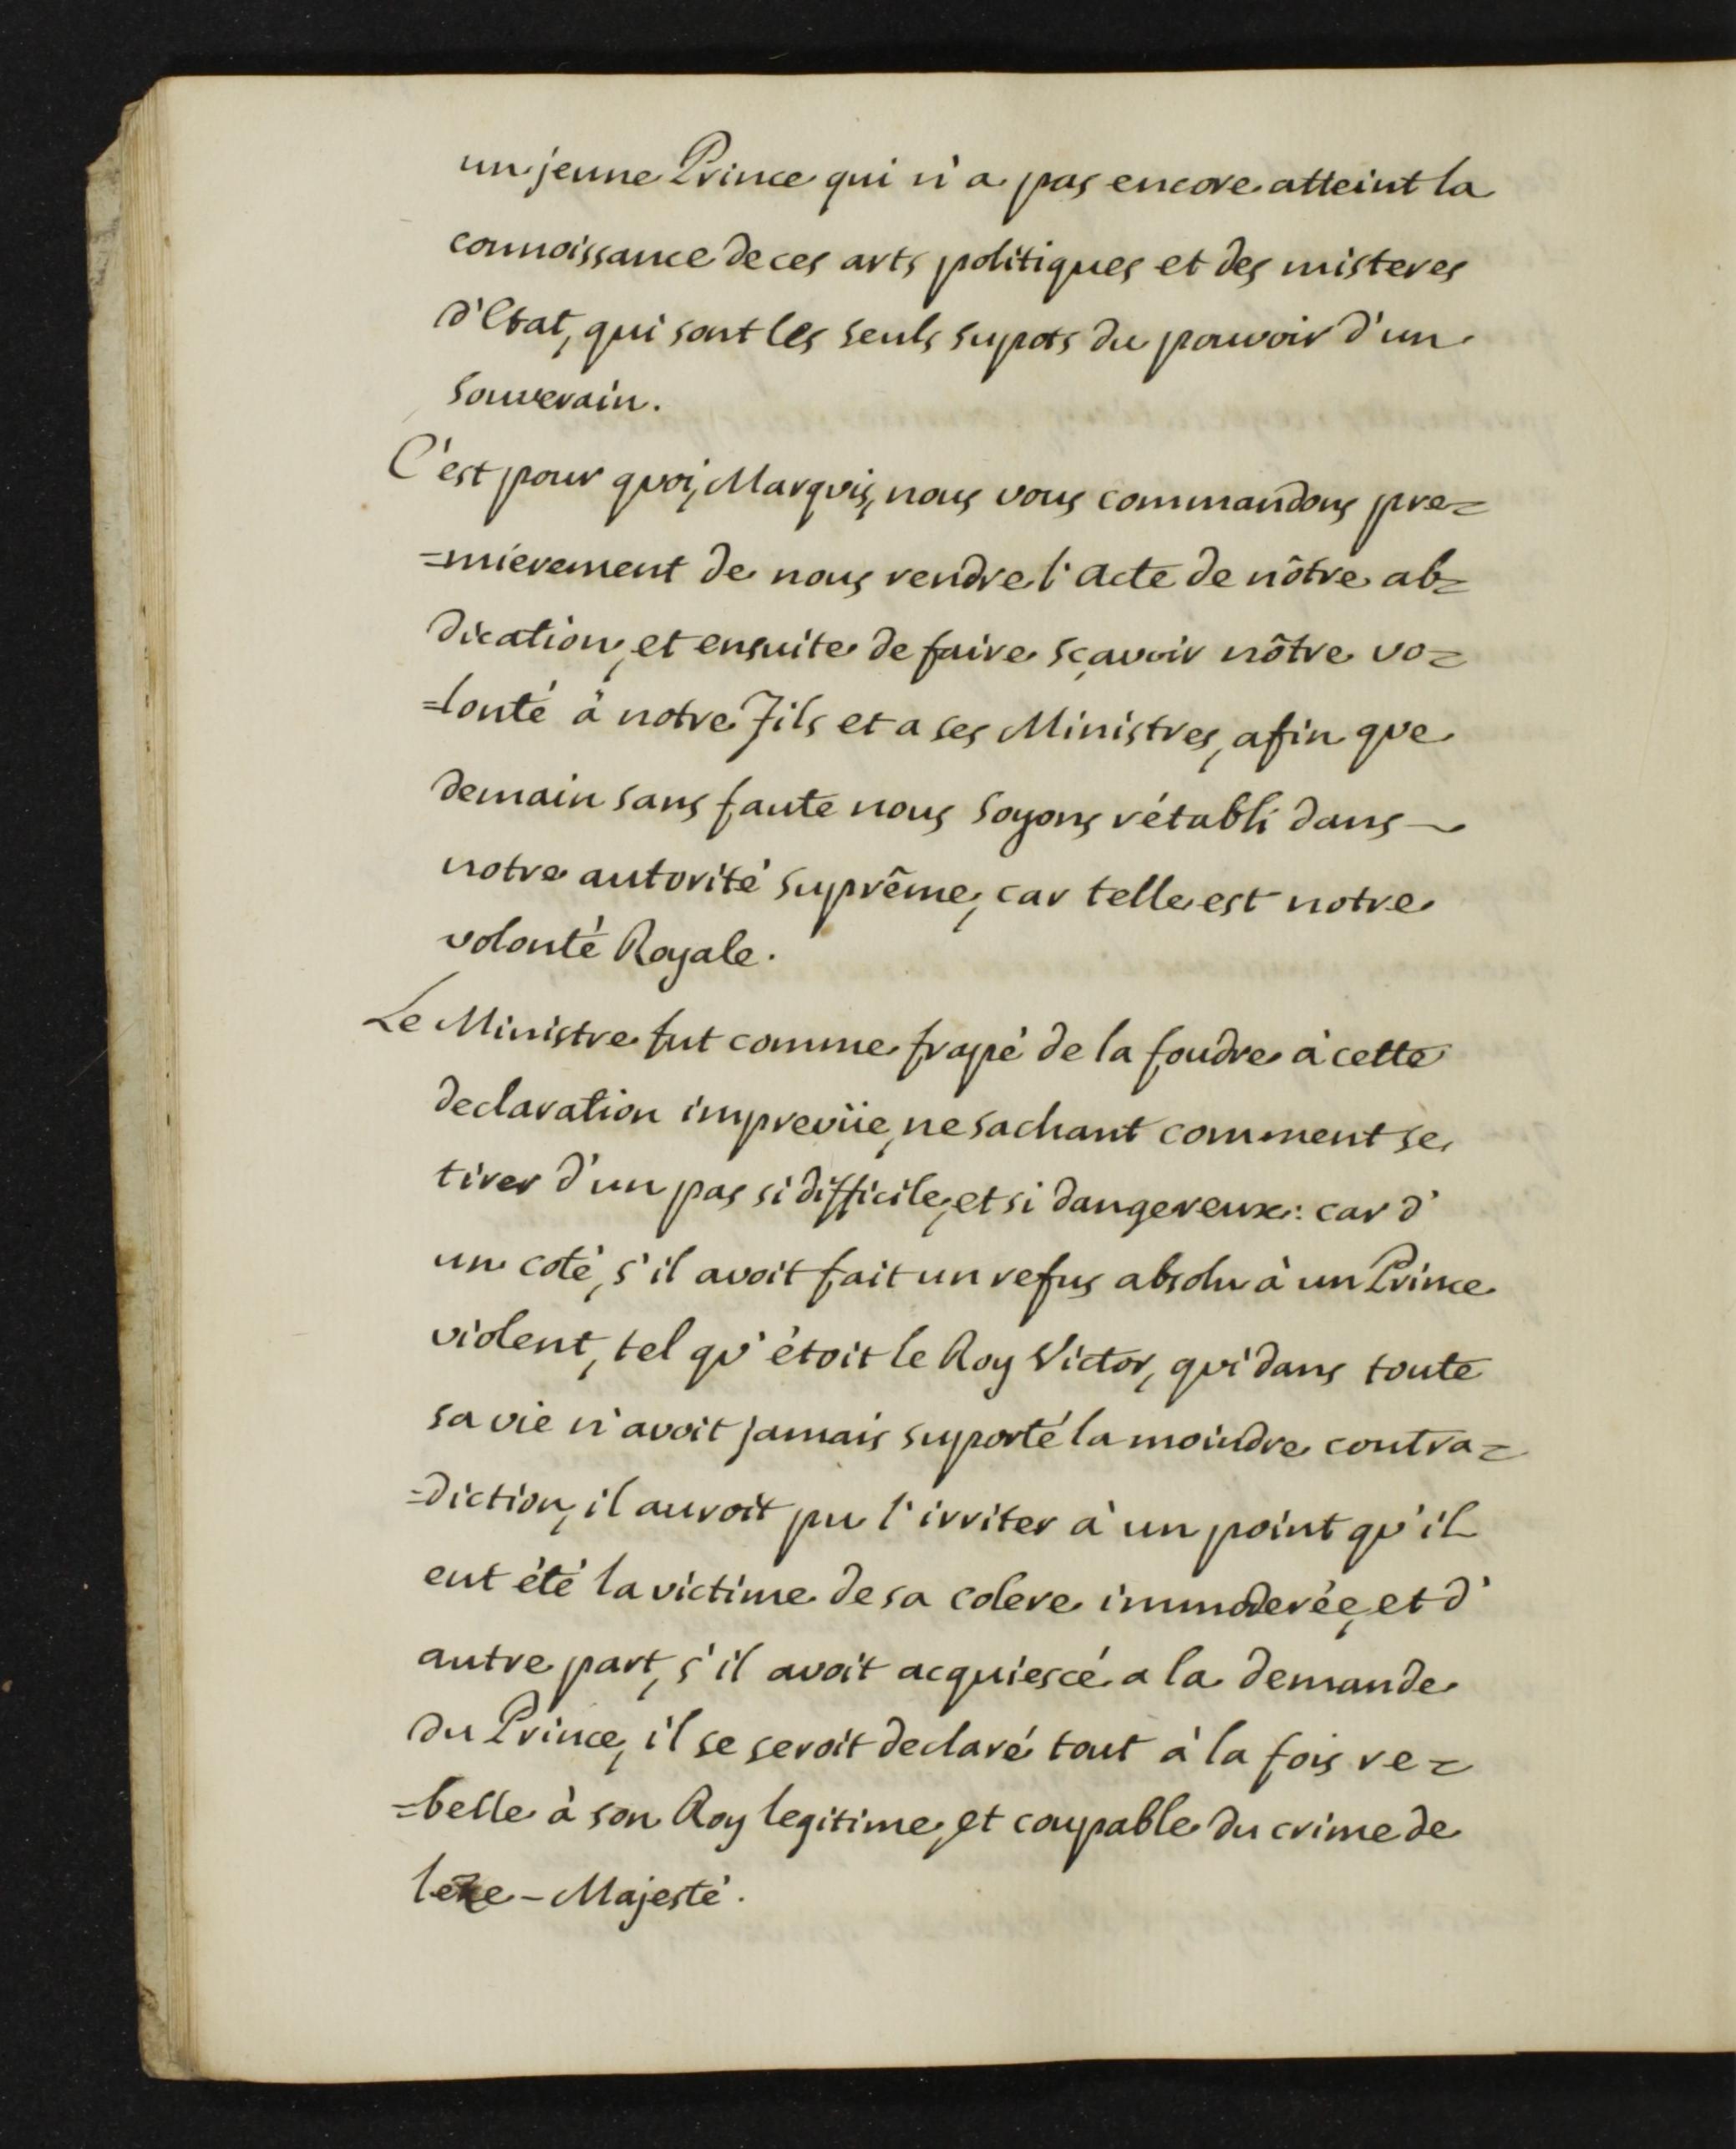 un jeune Prince qui n'a pas encore atteint la
connoissance de ces arts politiques et des misteres
d'Etat, qui sont les seuls supots du pouvoir d'un
souverain.
C'est pour quoi, Marquis, nous vous commandons pre=
=mierement de nous rendre l'acte de nôtre ab=
dication, et ensuite de faire sçavoir nôtre vo=
=lonté à notre Fils et a ses Ministres, afin que
demain sans faute nous soyons rétabli dans -
notre autorité suprême, car telle est notre
volonté Royale.
Le Ministre fut comme frapé de la foudre à cette
declaration imprevüe, ne sachant comment se
tirer d'un pas si difficile, et si dangereux: car d'
un coté, s'il avoit fait un refus absolu à un Prince
violent, tel qu'étoit le Roy Victor, qui dans toute
sa vie n'avoit jamais suporté la moindre contra=
=diction, il auroit pu l'irriter à un point qu'il
eut été la victime de sa colere immoderée, et d'
autre part, s'il avoit acquiescé a la demande
du Prince, il se seroit declaré tout à la fois re=
=belle à son Roy legitime, et coupable du crime de
leze-Majesté.